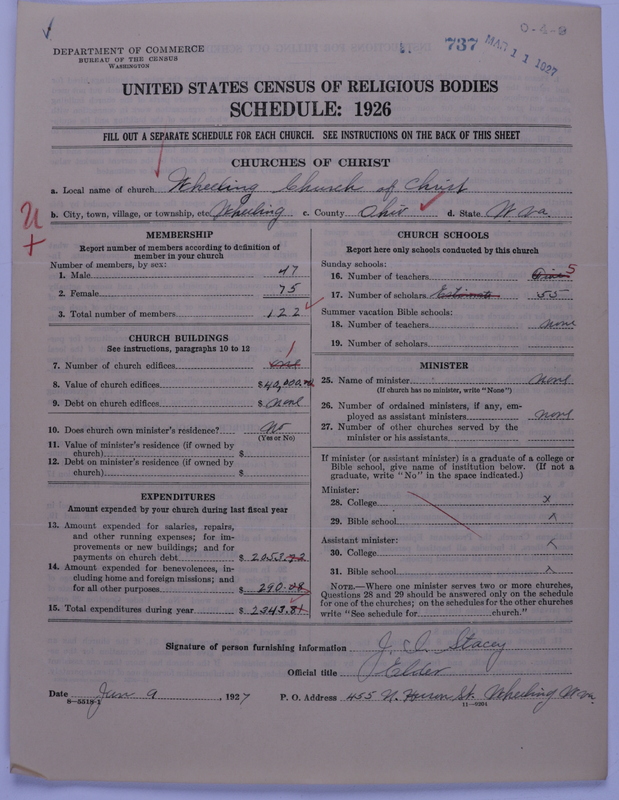 0-4-9
737 MAR 11 1927
DEPARTMENT OF COMMERCE
BUREAU OF THE CENSUS
WASHINGTON
UNITED STATES CENSUS OF RELIGIOUS BODIES
SCHEDULE: 1926
FILL OUT A SEPARATE SCHEDULE FOR EACH CHURCH. SEE INSTRUCTIONS ON THE BACK OF THIS SHEET
CHURCHES OF CHRIST
a. Local name of church Wheeling Church of Christ
b. City, town, village, or township, etc Wheeling c. County Ohio d. State W Va.
MEMBERSHIP
Report number of members according to definition of
member in your church
Number of members, by sex:
1. Male 47
2. Female 75
3. Total number of members 122
CHURCH BUILDINGS
See instructions, paragraphs 10 to 12
7. Number of church edifices one 1
8. Value of church edifices $40,000.00
9. Debt on church edifices $ None
10. Does church own minister's residence? No
(Yes or No)
11. Value of minister's residence (if owned by
church) $
12. Debt on minister's residence (if owned by
church) $
EXPENDITURES
Amount expended by your church during last fiscal year
13. Amount expended for salaries, repairs,
and other running expenses; for im-
provements or new buildings; and for
payments on church debt $ 2053.
14. Amount expended for benevolences, in-
cluding home and foreign missions; and
for all other purposes $ 290.
15. Total expenditures during year $ 2343.
CHURCH SCHOOLS
Report here only schools conducted by this church
Sunday schools:
16. Number of teachers 5
17. Number of scholars Estimate 55
Summer vacation Bible schools:
18. Number of teachers none
19. Number of scholars
MINISTER
25. Name of minister none
(If church has no minister, write "None")
26. Number of ordained ministers, if any, em-
ployed as assistant ministers none
27. Number of other churches served by the
minister or his assistants
If minister (or assistant minister) is a graduate of a college or
Bible school, give name of institution below. (If not a
graduate, write "No" in the space indicated.)
Minister:
28. College x
29. Bible school x
Assistant minister:
30. College x
31. Bible school x
NOTE.—Where one minister serves two or more churches,
Questions 28 and 29 should be answered only on the schedule
for one of the churches; on the schedules for the other churches
write "See schedule for church."
Signature of person furnishing information J. C. Stacey
Official title Elder
Date Jan 9, 1927 P. O. Address 455 N. St. Wheeling W Va.
8—5518-1 11—9204